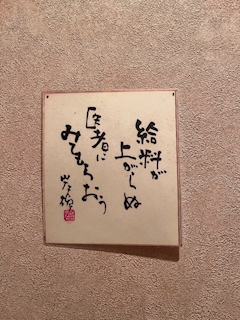 給料が
上がらぬ
医者に
みてもらおう